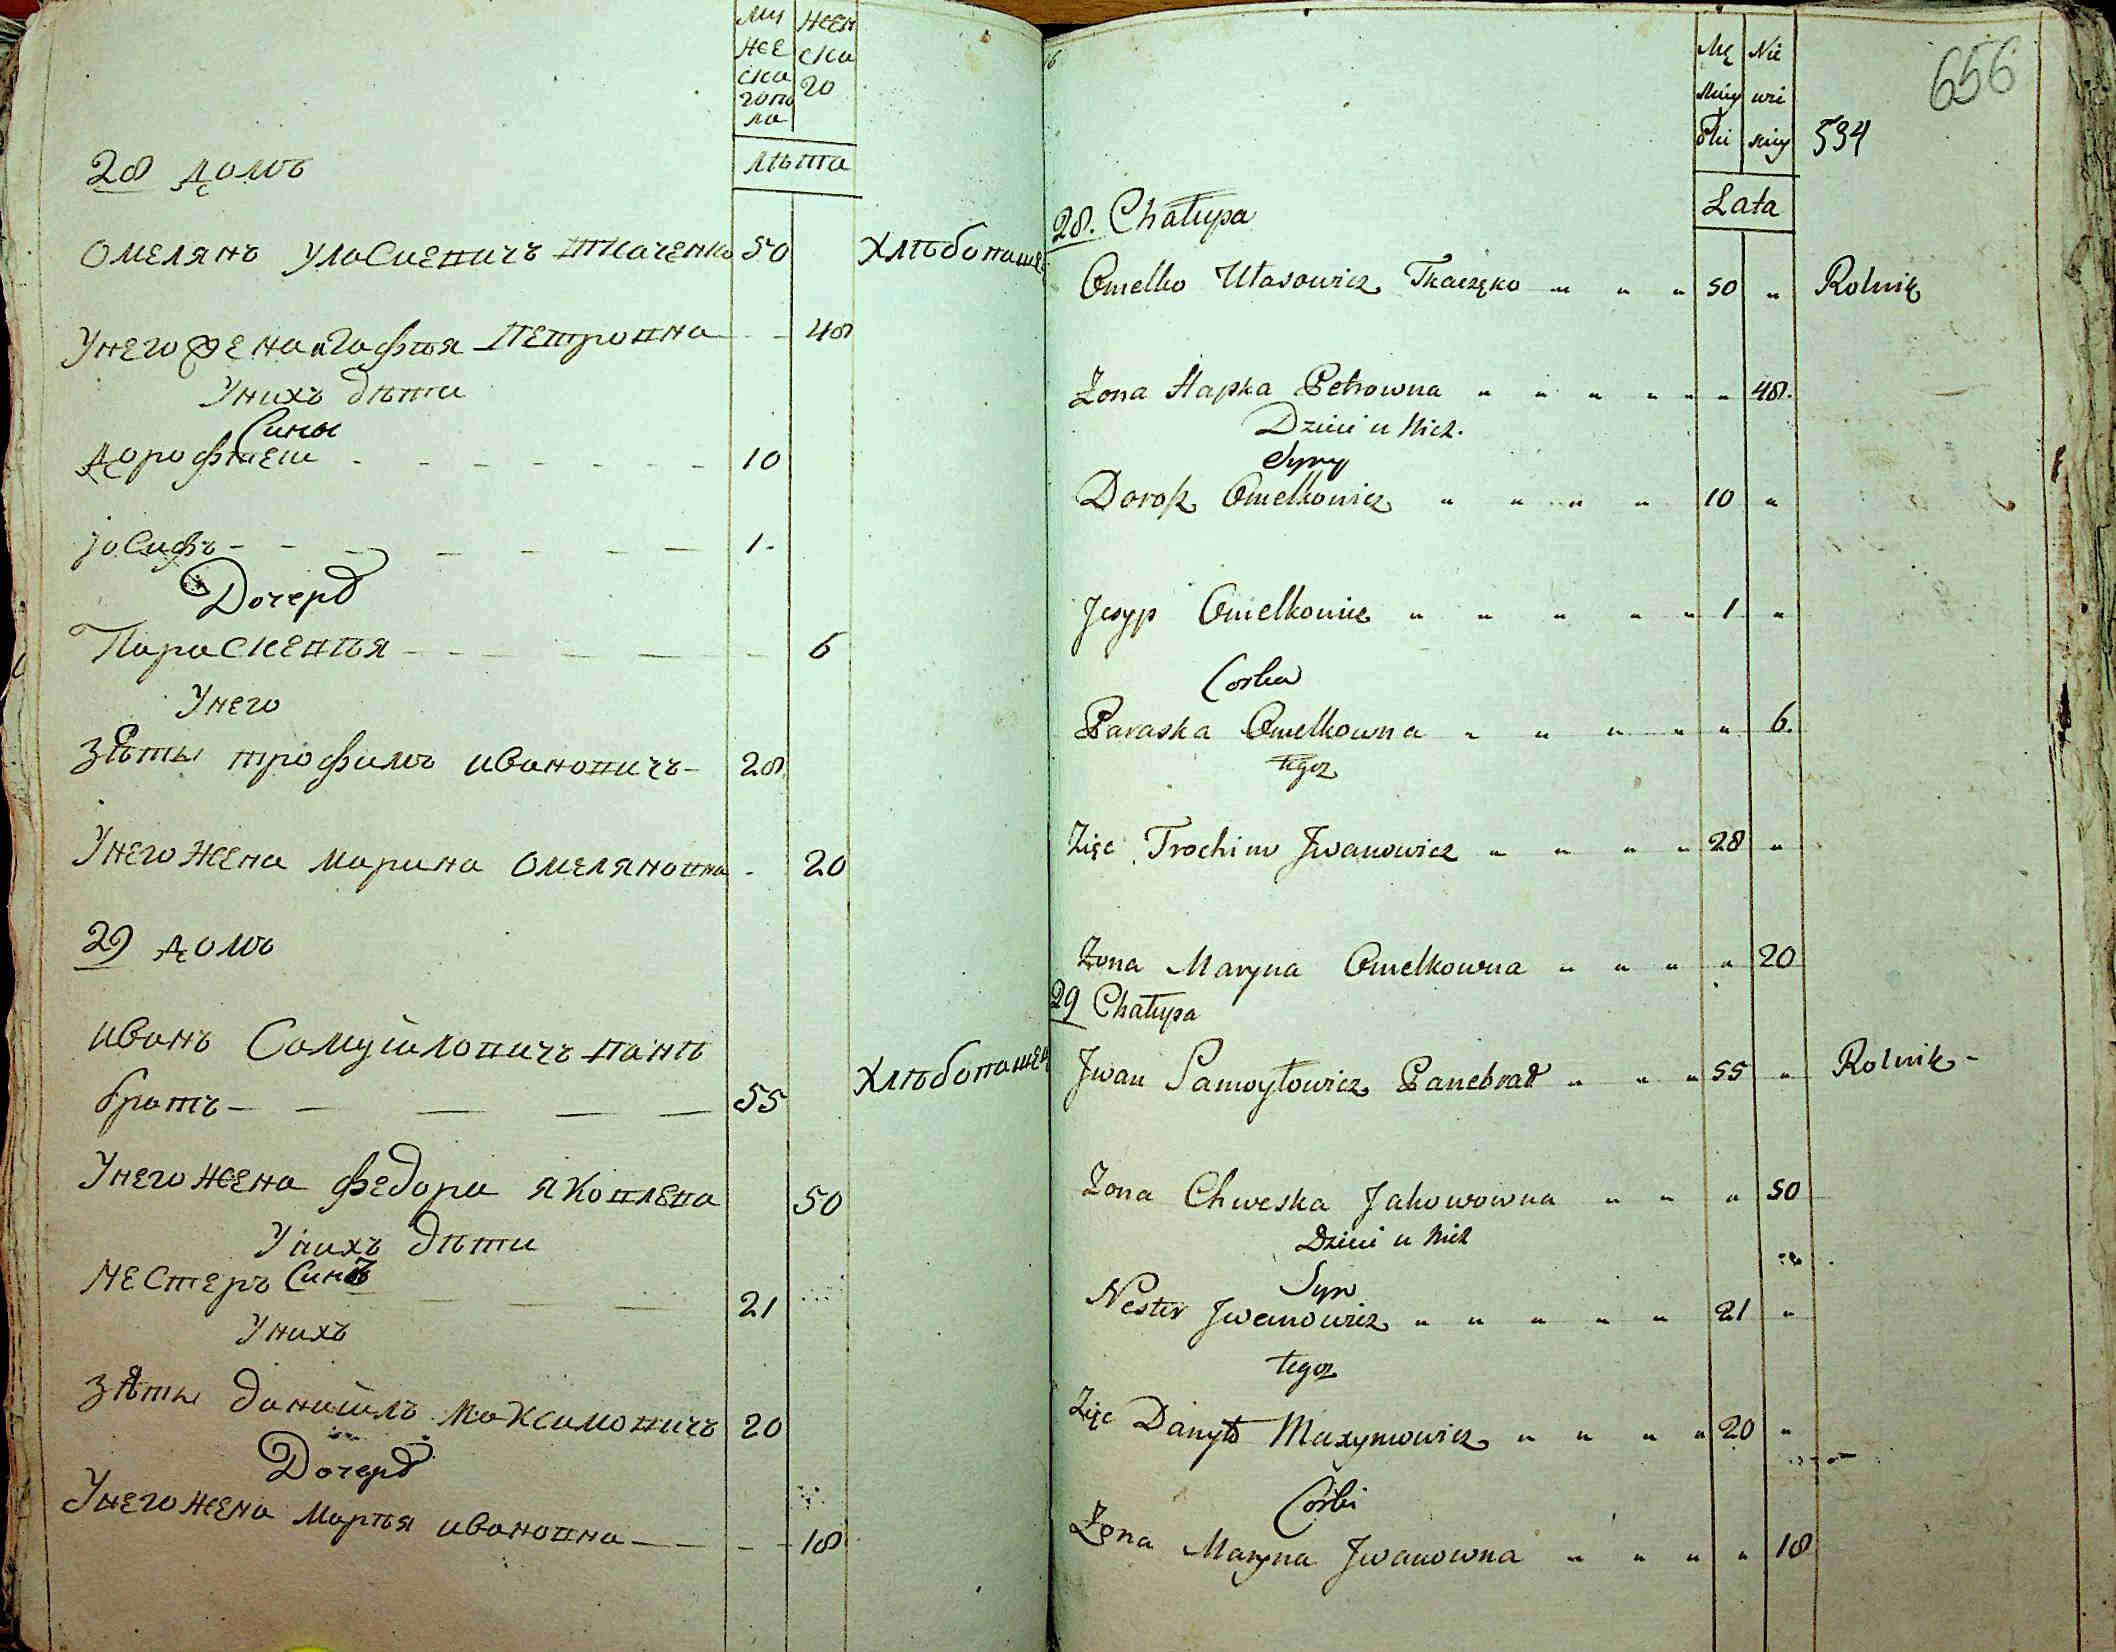 му
же
ска
гопо
ла
жен
ска
го
лѣта
28 домъ
Омелянъ Уласиевичъ Ткаченко 50 Хлѣбопаше
Унего жена агафия Петровна - - 48
Унихъ дѣти
Сины
дорофтеи - - - - - - - 10
іосифъ - - - - - - - 1.
Дочерѣ
Параскевия - - - - - 6
Унего
Зѣты трофимъ ивановичъ - 28
Унего жена марина Омеляновна - 20
29 домъ
иванъ Самуйловичъ пане
братъ - - - - - 55 Хлѣбопашец
Унего жена федора яковлева 50
Унихъ дѣти
Нестеръ Синъ - - - 21
Унихъ
Зѣты данийлъ максимовичъ 20
Дочерѣ
Унего жена марья ивановна - - - - 18
656
534
Mę
skiey
Płci
Nie
wie
skiey
Lata
28. Chałupa
Omelko Ułasowicz Tkaczęko " " " 50 " Rolnik
Żona Hapka Petrowna " " " " " " 48.
Dzieci u Nich.
Syny
Dorosz Omelkowicz " " " " 10 "
Jesyp Omelkowic " " " " " 1 "
Corka
Paraska Omelkowna " " " " " 6.
tegoz
Zięc Trochim Jwanowicz " " " " 28 "
Żona Maryna Omelkowna " " " " 20
29 Chałupa
Jwan Samoyłowicz Panebrad " " " 55 " Rolnik -
Żona Chweska Jakowowna " " " 50
Dzieci u Nich
Syn
Nester Jwanowicz " " " " " 21 "
tegoz
Zięc Danyło Maxymowicz " " " " 20 "
Corki
Żona Maryna Jwanowna " " " " 18